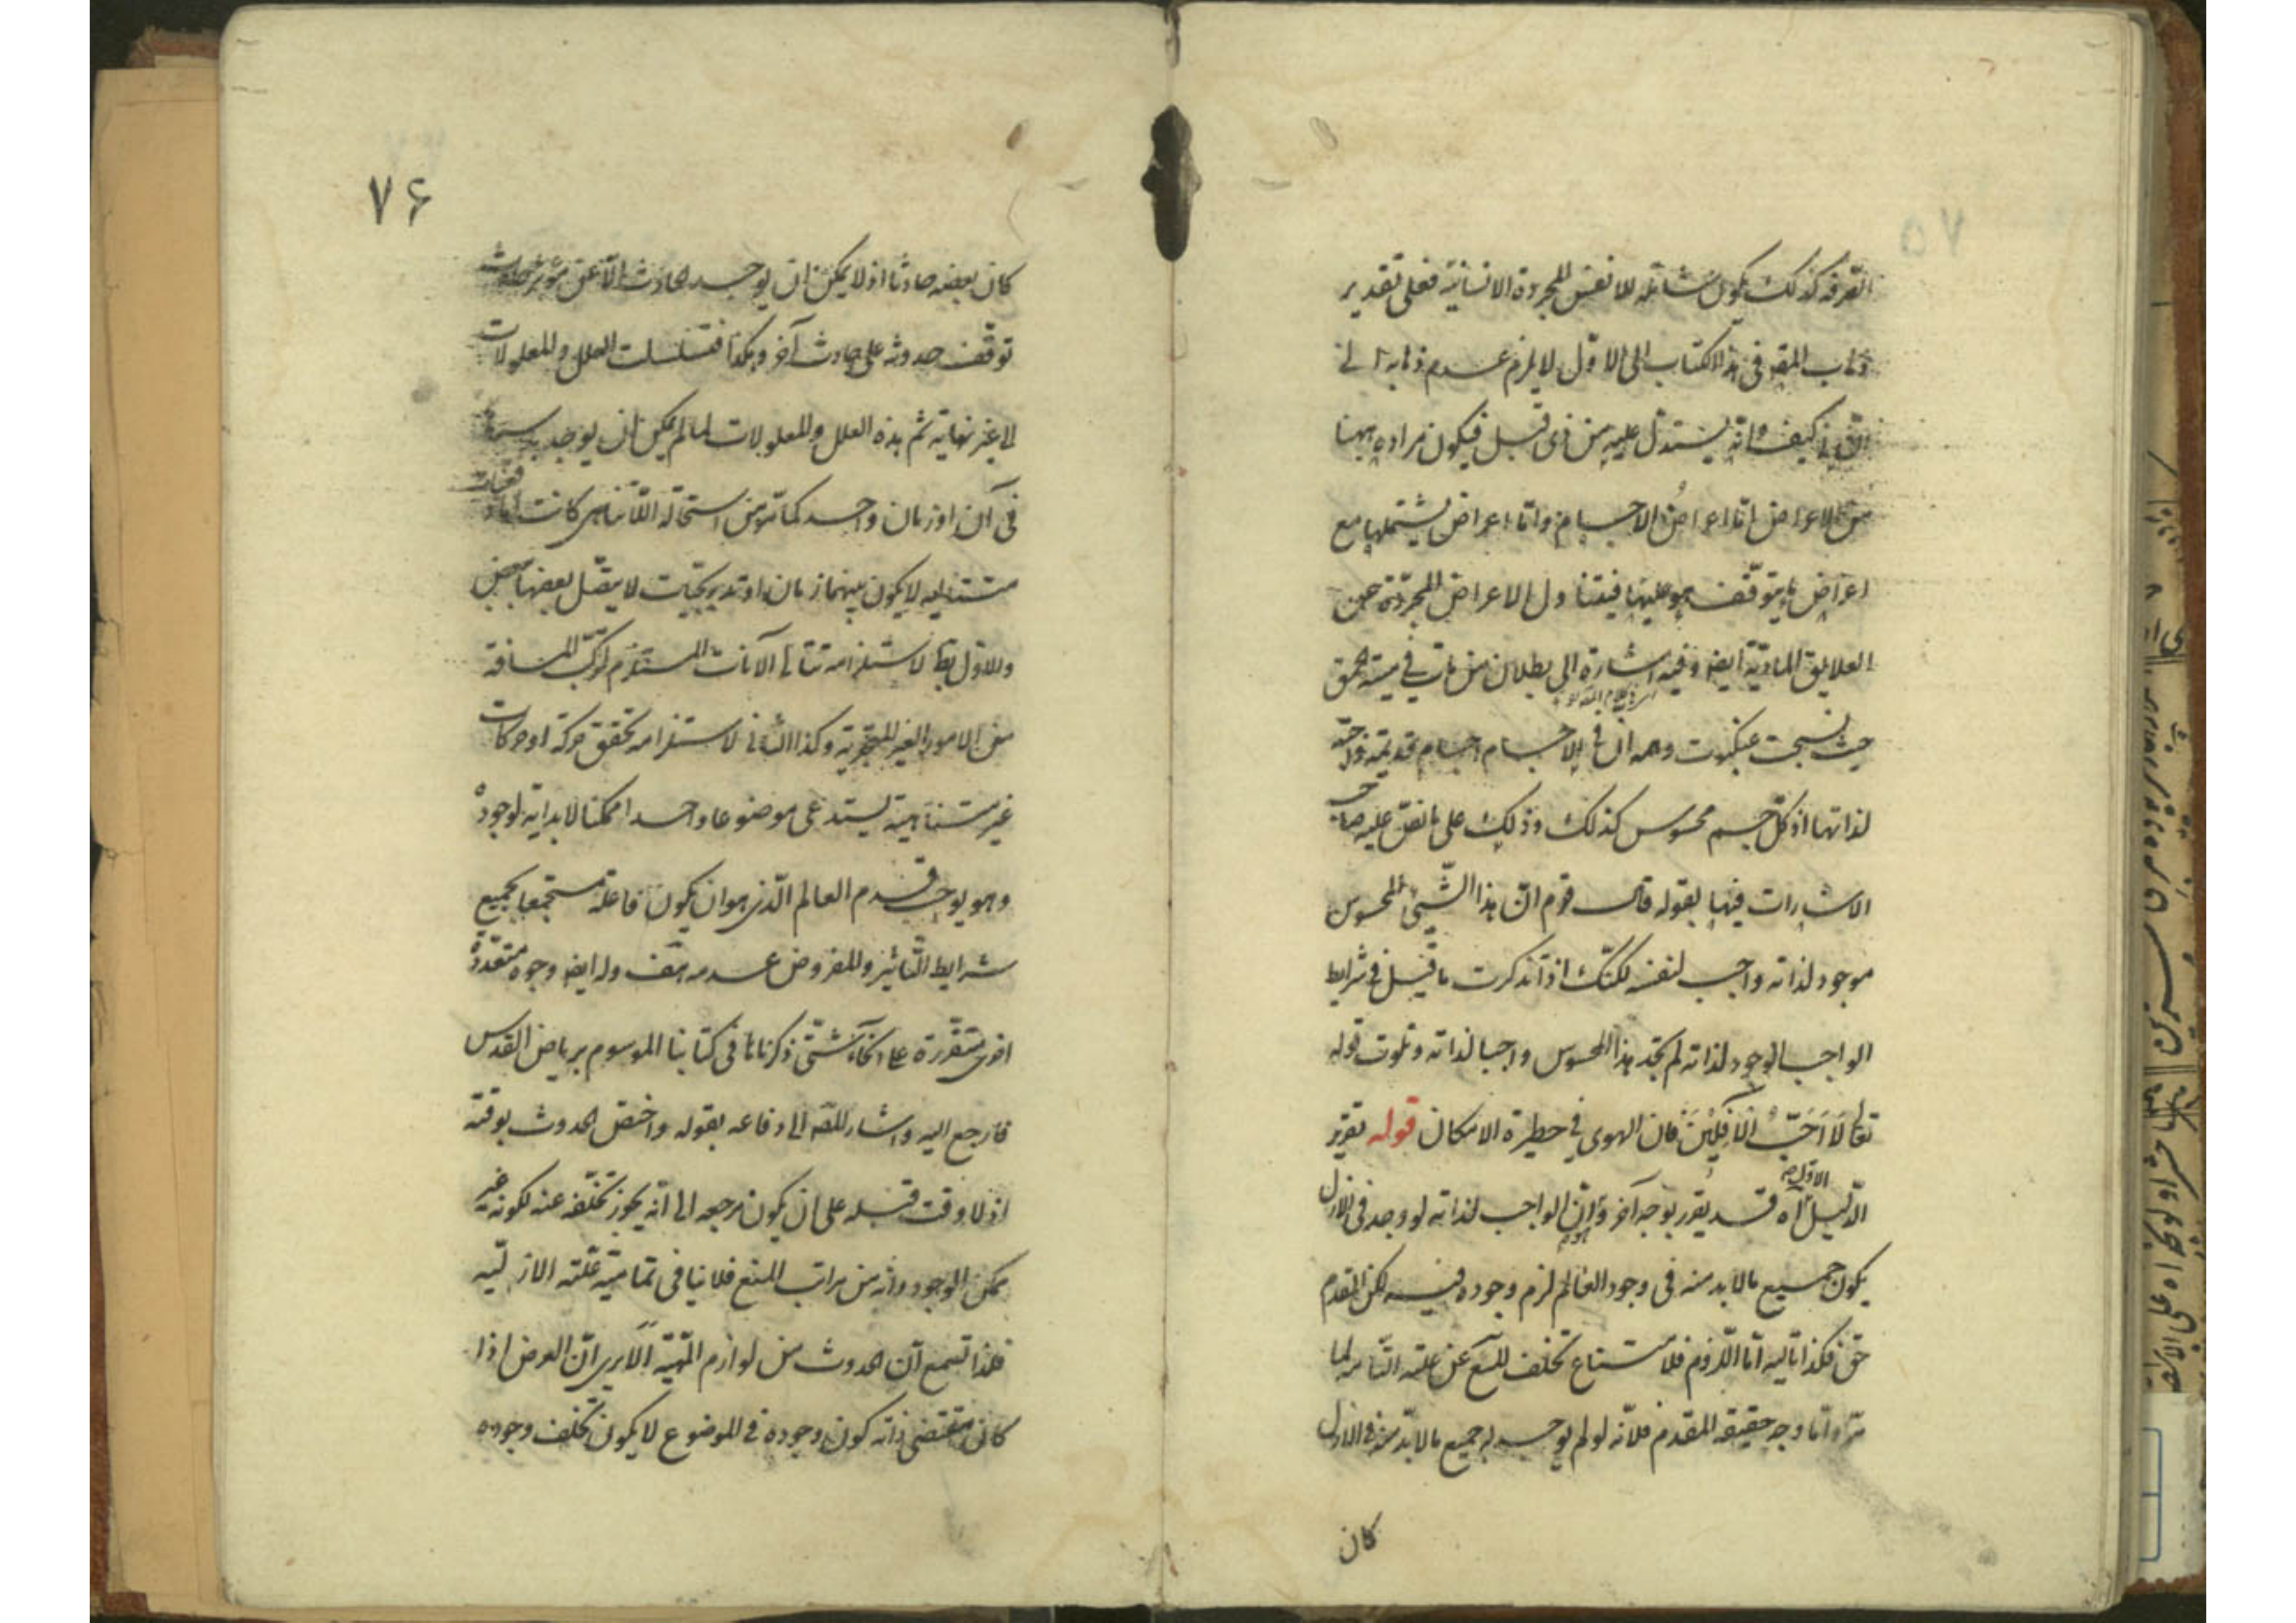 التفرقة كذلك يكون شاملة للانفس المجردة الانسانية فعلى تقدير
ذهاب المصه فى هذا الكتاب الى الاول لا يلزم عدم ذهابه الى
الثانى كيف وانه يستدل عليه من ذى قبل فيكون مراده ههنا
من الاعراض اما اعراض الاجسام واما اعراض يشتملها مع
اعراض ما يتوقف هو عليها فيتناول الاعراض المجردة عن
العلايق المادية ايضا وفيه اشارة الى بطلان من بات فى
حيث نسجت عنكبوت وهمه ان فى الاجسام اجسام قديمة واجبة
لذاتها اذ كل جسم محسوس كذلك وذلك على ما نقل عليه صاحب
الاشارات فيها بقوله قال قوم ان هذا الشىء المحسوس
موجود لذاته واجب لنفسه لكنك اذا تذكرت ما قيل فى شرايط
الواجب الوجود لذاته لم تجد هذا المحسوس واجبا لذاته وتلوت قوله
تعالى لَا اُحِبُّ الْآفِلِيْنَ فان الهوى فى حظيرة الامكان قوله تقرير
الدليل الاول اه قد يقرر بوجه آخر وهو ان الواجب لذاته لو وجد فى الازل
يكون جميع ما لا بد منه فى وجود العالم لزم وجوده فيه لكن المقدم
حق فكذا تاليه اما اللزوم فلامتناع تخلف المع عن علته التامه لما
مر واما وجه حقيقه المقدم فلانه لو لم يوجد له جميع ما لا بد منه فى الازل
كان
٧۶
كان بعضه حادثا اذ لا يمكن ان يوجد الحادث الا عن مؤثر حادث
توقف حدوثه على حادث آخر وهكذا فتسلسلت العلل والمعلولات
الى غير نهاية ثم هذه العلل والمعلولات لما لم يمكن ان يوجد باسرها
فى آن او زمان واحد كما مر من استحالة اللاتناهى كانت اما دفعيات
متتاليه لا يكون بينهما زمان او تدريجيات لا يتصل بعضها ببعض
والاول بط لاستلزامه تتالى الآنات المستلزم لتركب المسافة
من الامور الغير المتجزية وكذا الثانى لاستلزامه تحقق حركة او حركات
غير متناهية يستدعى موضوعا واحدا ممكنا لا بداية لوجوده
وهو يوجب قدم العالم الذى هو ان يكون فاعله مستجمعا بجميع
شرايط التأثير والمفروض عدمه هف وله ايضا وجوه متعددة
اخرى متقررة على انحاء شتى ذكرناها فى كتابنا الموسوم برياض القدس
فارجع اليه واشار المصه الى دفاعه بقوله واختص الحدوث بوقته
اذ لا وقت قبله على ان يكون مرجعه الى انه يجوز تخلفه عنه لكونه غير
ممكن الوجود وانه من مراتب الممتنع فلا ينافى تمامية علته الازلية
فلذا تسمع ان الحدوث من لوازم المهية الا يرى ان العرض اذا
كان مقتضى ذاته كون وجوده فى الموضوع لا يكون تخلف وجوده